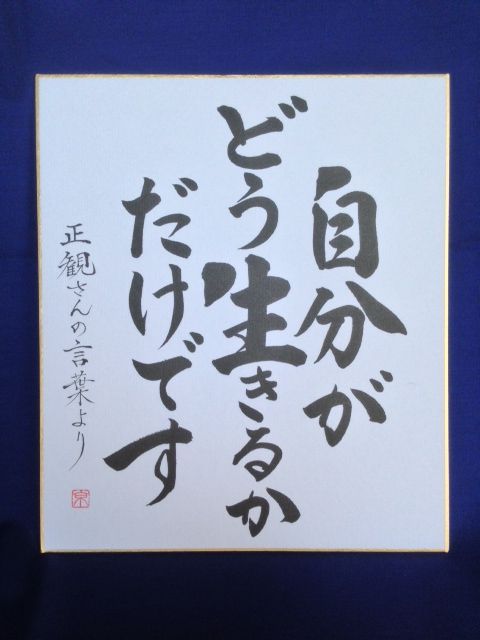 自分が
どう生きるか
だけです
正観さんの言葉より